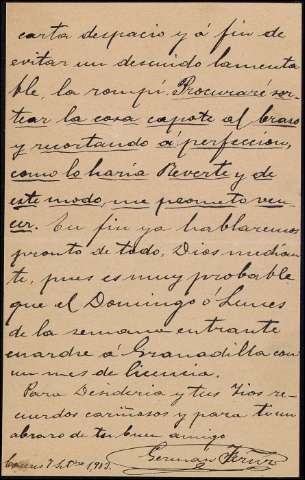 carta despacio y á fin de
evitar un descuido lamenta
ble, la rompí. Procuraré sor-
tear la cosa capote al brazo
y recortando á perfección,
como lo haría Reverte y de
este modo, me prometo ven-
cer. En fin ya hablaremos
pronto de todo, Dios median-
te, pues es muy probable
que el Domingo ó Lunes
de la semana entrante
marche á Granadilla con
un mes de licencia.
Para Desideria y tus Tios re-
cuerdos cariñosos y para ti un
abrazo de tu buen amigo
German
1903.